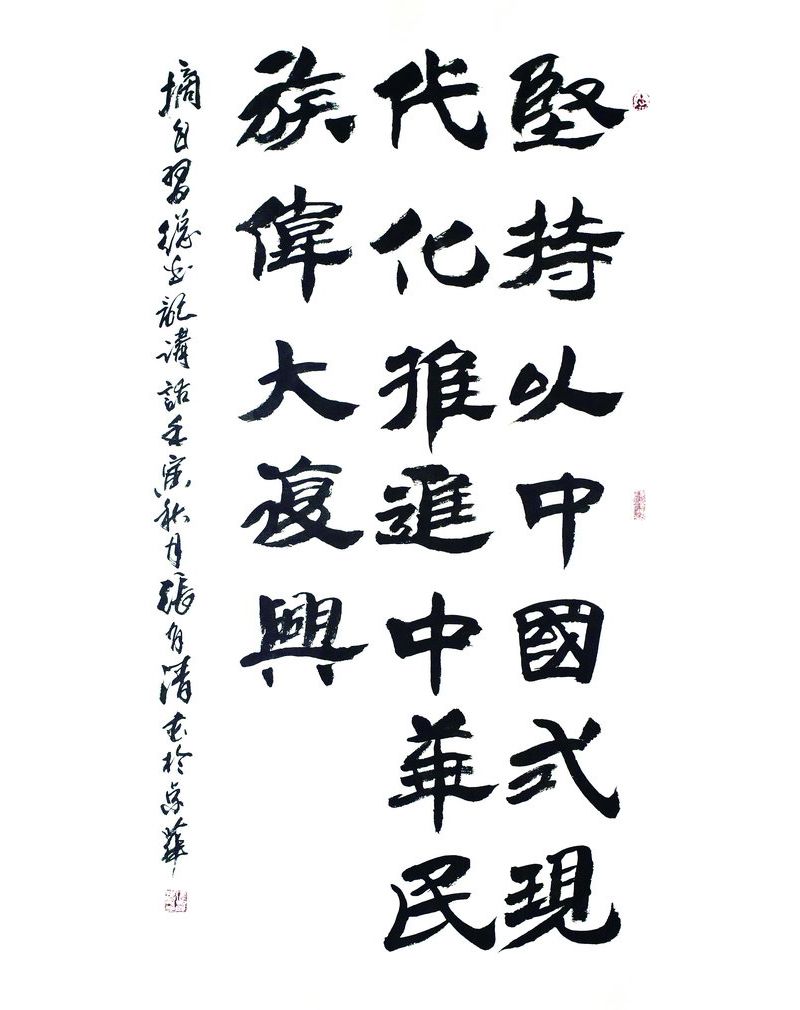 堅持以中國式現
代化推進中華民
族偉大復興
摘自習總書記講話壬寅秋月張有清書於京華